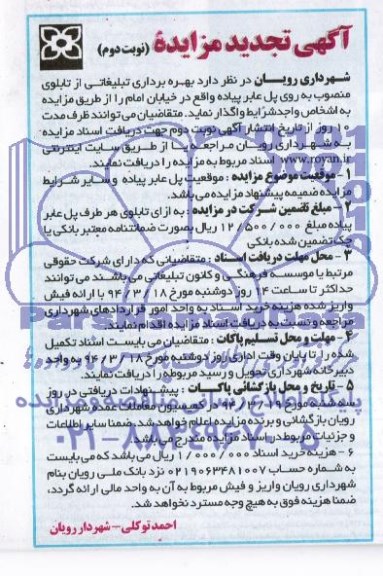 آگهی تجدید مزایدهٔ (نوبت دوم)
شهرداری رویان در نظر دارد بهره برداری تبلیغاتی از تابلوی
منصوب به روی پل عابر پیاده واقع در خیابان امام را از طریق مزایده
به اشخاص واجد شرایط واگذار نماید. متقاضیان می توانند ظرف مدت
۱۰ روز از تاریخ انتشار آگهی نوبت دوم جهت دریافت اسناد مزایده
به شهرداری رویان مراجعه یا از طریق سایت اینترنتی
www.royan.ir اسناد مربوط به مزایده را دریافت نمایند.
۱- موقعیت موضوع مزایده : موقعیت پل عابر پیاده و سایر شرایط
مزایده ضمیمه پیشنهاد مزایده می باشد.
۲- مبلغ تضمین شرکت در مزایده : به ازای تابلوی هر طرف پل عابر
پیاده مبلغ ۱۲/۵۰۰/۰۰۰ ریال بصورت ضمانتنامه معتبر بانکی یا
چک تضمین شده بانکی
۳- محل مهلت دریافت اسناد : متقاضیانی که دارای شرکت حقوقی
مرتبط یا موسسه فرهنگی و کانون تبلیغاتی می باشند می توانند
حداکثر تا ساعت ۱۴ روز دوشنبه مورخ ۹۴/۳/۱۸ با ارائه فیش
واریز شده هزینه خرید اسناد به واحد امور قراردادهای شهرداری
مراجعه و نسبت به دریافت اسناد مزایده اقدام نمایند.
۴- مهلت و محل تسلیم پاکات : متقاضیان می بایست اسناد تکمیل
شده را تا پایان وقت اداری روز دوشنبه مورخ ۹۴/۳/۱۸ به واحد
دبیرخانه شهرداری تحویل و رسید مربوطه را دریافت نمایند.
۵- تاریخ و محل بازگشائی پاکات : پیشنهادات دریافتی در روز
سه شنبه مورخ ۹۴/۳/۱۹ در کمیسیون معاملات عمده شهرداری
رویان بازگشائی و برنده مزایده اعلام خواهد شد، ضمنا سایر اطلاعات
و جزئیات مربوط در اسناد مزایده مندرج می باشد.
۶- هزینه خرید اسناد ۱/۰۰۰/۰۰۰ ریال می باشد که می بایست
به شماره حساب ۰۲۱۹۰۶۳۴۸۱۰۰۷ نزد بانک ملی رویان بنام
شهرداری رویان واریز و فیش مربوط به آن به واحد مالی ارائه گردد،
ضمنا هزینه فوق به هیچ وجه مسترد نخواهد شد.
احمد توکلی- شهردار رویان